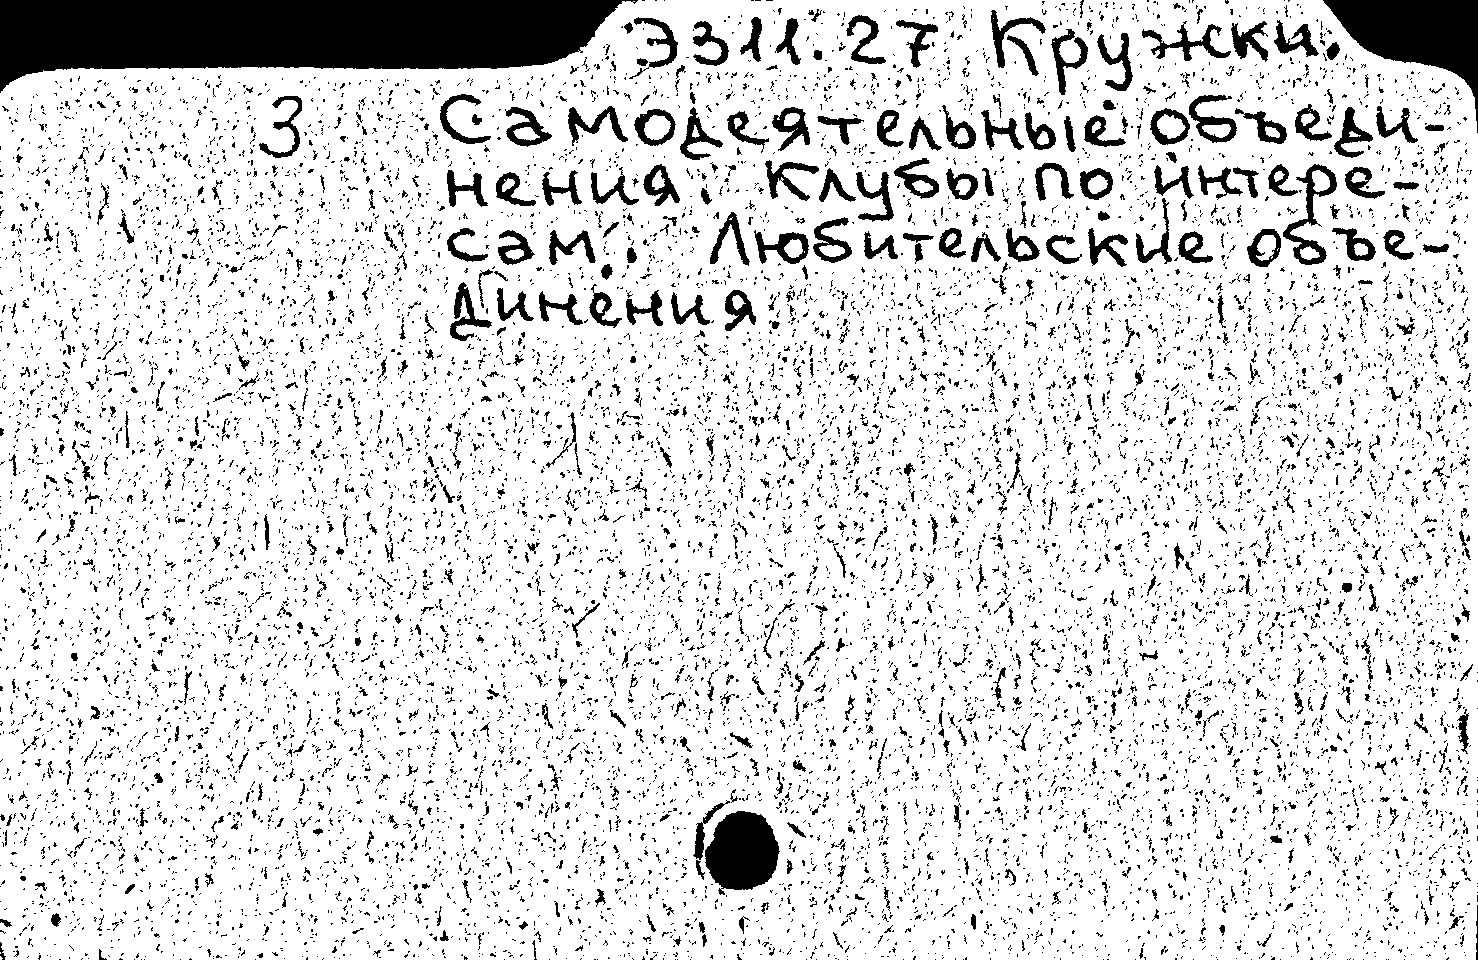 Э311.27 Кружки.
3 Самодеятельные объеди-
нения. Клубы по интере-
сам. Любительские объе-
динения.